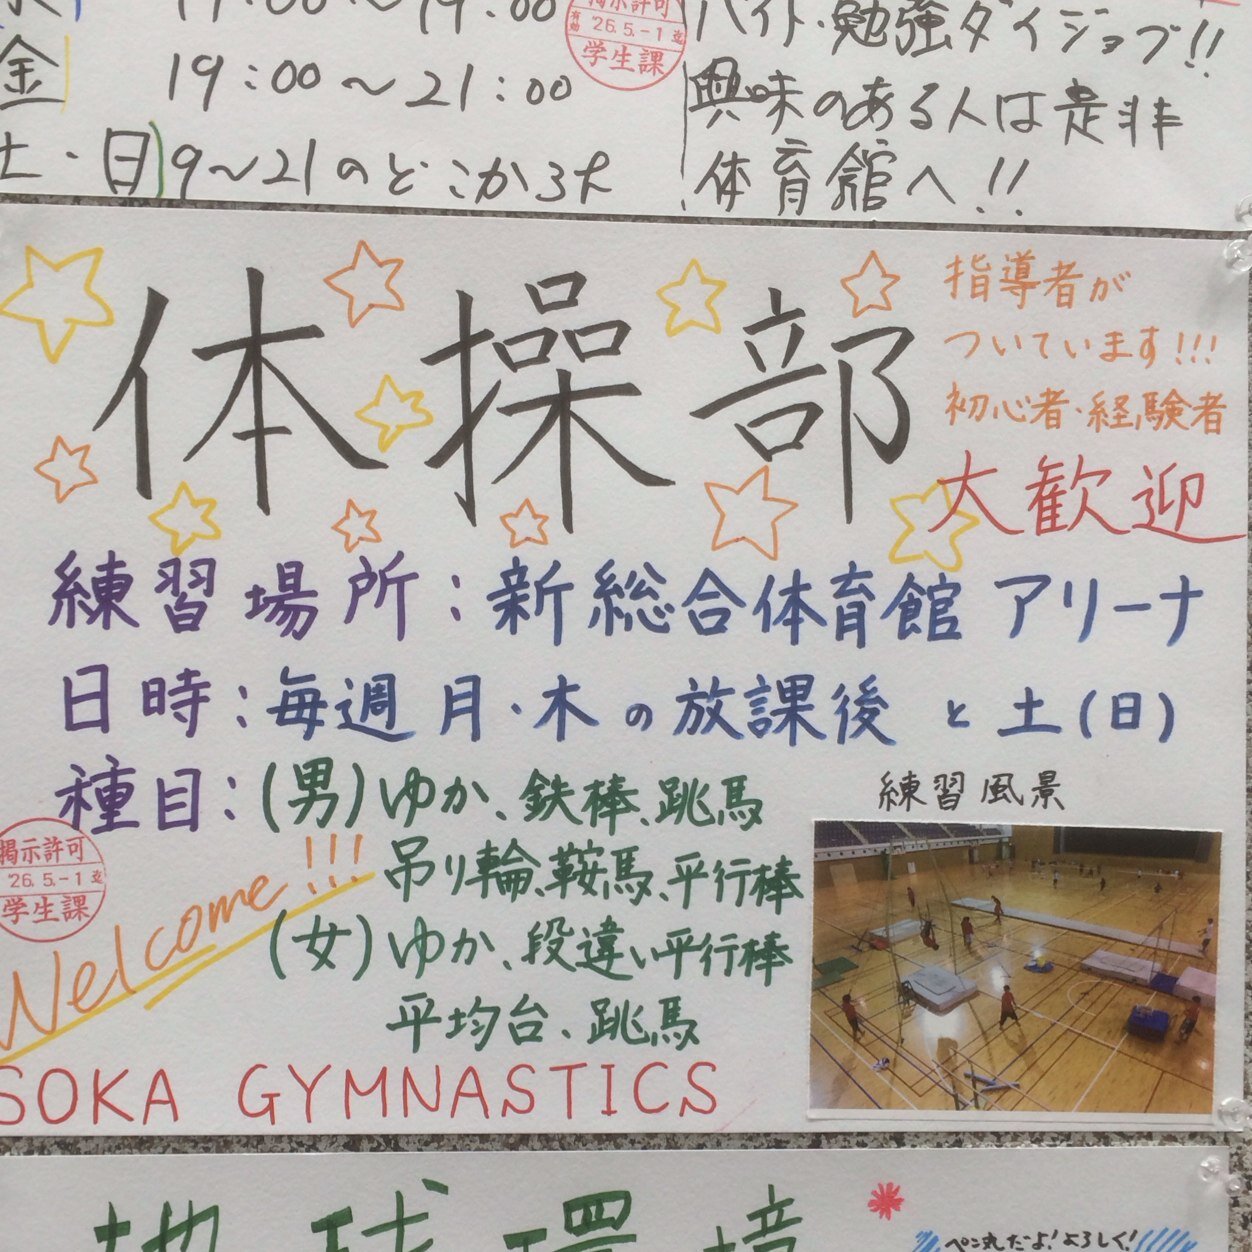 17:00～19:00
金 19:00～21:00
土・日 9～21のどこかろ大
掲示許可
有効 26.5.-1 迄
学生課
バイト・勉強ダイジョブ!!
興味のある人は是非
体育館へ!!
体操部
指導者が
ついています!!!
初心者・経験者
大歓迎
練習場所:新総合体育館 アリーナ
日時:毎週月・木の放課後 と 土(日)
種目:(男)ゆか、鉄棒、跳馬
吊り輪、鞍馬、平行棒
(女)ゆか、段違い平行棒
平均台、跳馬
練習風景
掲示許可
26.5.-1 迄
学生課
Welcome!!!
SOKA GYMNASTICS
地球環境
ペン丸だーよ!よろしく!